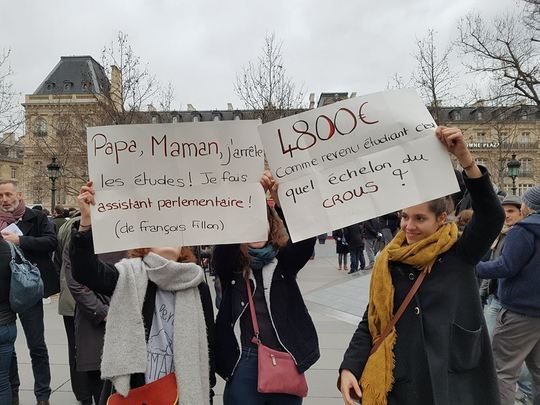 Papa, Maman, j'arrête
les études! Je fais
assistant parlementaire!
(de François Fillon)
4800€
comme revenu étudiant
quel échelon du
CROUS ?
PLAZA